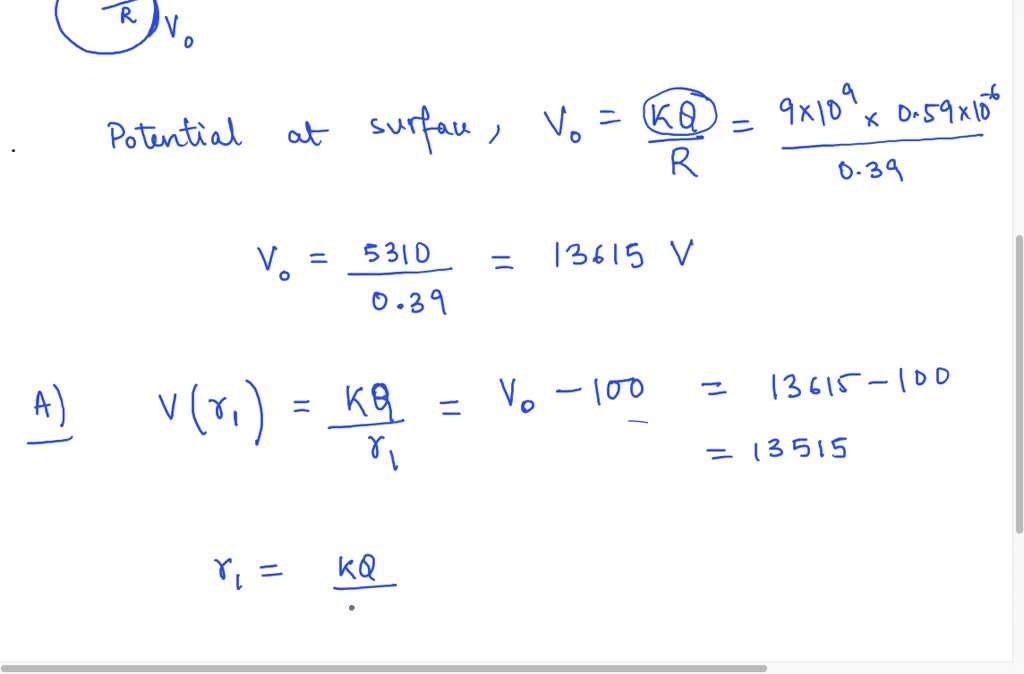 R V₀
Potential at surface, V₀ = KQ/R = 9×10⁹ × 0.59×10⁻⁶/0.39
V₀ = 5310/0.39 = 13615 V
A) V(r₁) = KQ/r₁ = V₀ – 100 = 13615 – 100
= 13515
r₁ = KQ